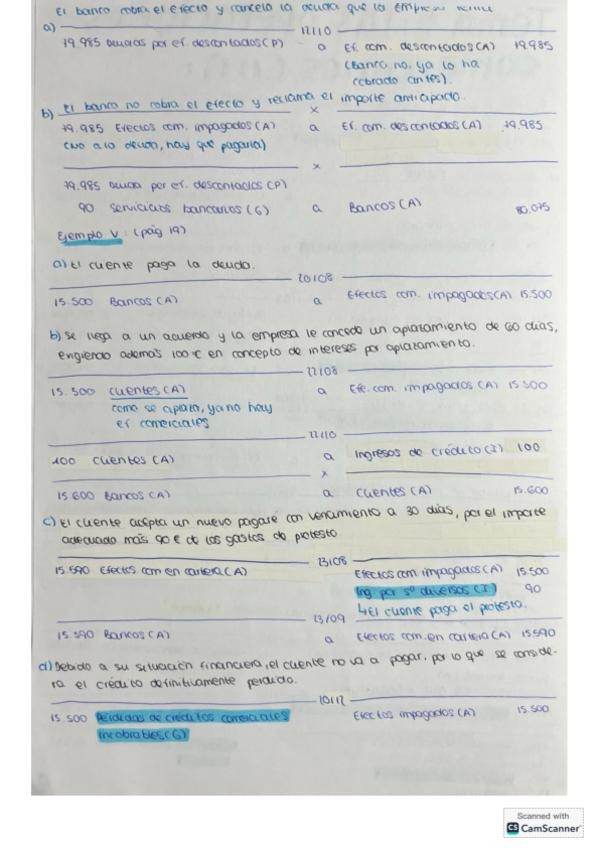 El banco cobra el efecto y cancela la deuda que la empresa
a) 12/10
19.985 Deudas por ef. descontados (P) a Ef. com. descontados (A) 19.985
(Banco no, ya lo ha
cobrado antes).
b) El banco no cobra el efecto y reclama el importe anticipado.
x
79.985 Efectos com. impagados (A) a Ef. com. descontados (A) 79.985
deuda, hay que pagarla)
x
79.985 Deuda por ef. descontados (P)
90 Servicios bancarios (G) a Bancos (A) 80.075
Ejemplo V: (pág 19)
a) El cliente paga la deuda.
20/08
15.500 Bancos (A) a Efectos com. impagados (A) 15.500
b) Se llega a un acuerdo y la empresa le concede un aplazamiento de 60 días,
exigiendo además 100 € en concepto de intereses por aplazamiento.
22/08
15.500 Clientes (A) a Efe. com. impagados (A) 15.500
como se aplaza, ya no hay
ef comerciales
22/10
100 Clientes (A) a Ingresos de crédito (I) 100
x
15.600 Bancos (A) a Clientes (A) 15.600
c) El cliente acepta un nuevo pagaré con vencimiento a 30 días, por el importe
adecuado más 90 € de los gastos de protesto
23/08
15.590 Efectos com en cartera (A) Efectos com. impagados (A) 15.500
Ing por sº diversos (I) 90
↳ El cliente paga el protesto.
23/09
15.590 Bancos (A) a Efectos com. en cartera (A) 15.590
d) Debido a su situación financiera, el cliente no va a pagar, por lo que se conside-
ra el crédito definitivamente perdido.
10/12
15.500 Pérdidas de créditos comerciales Efectos impagados (A) 15.500
incobrables (G)
Scanned with
CS CamScanner